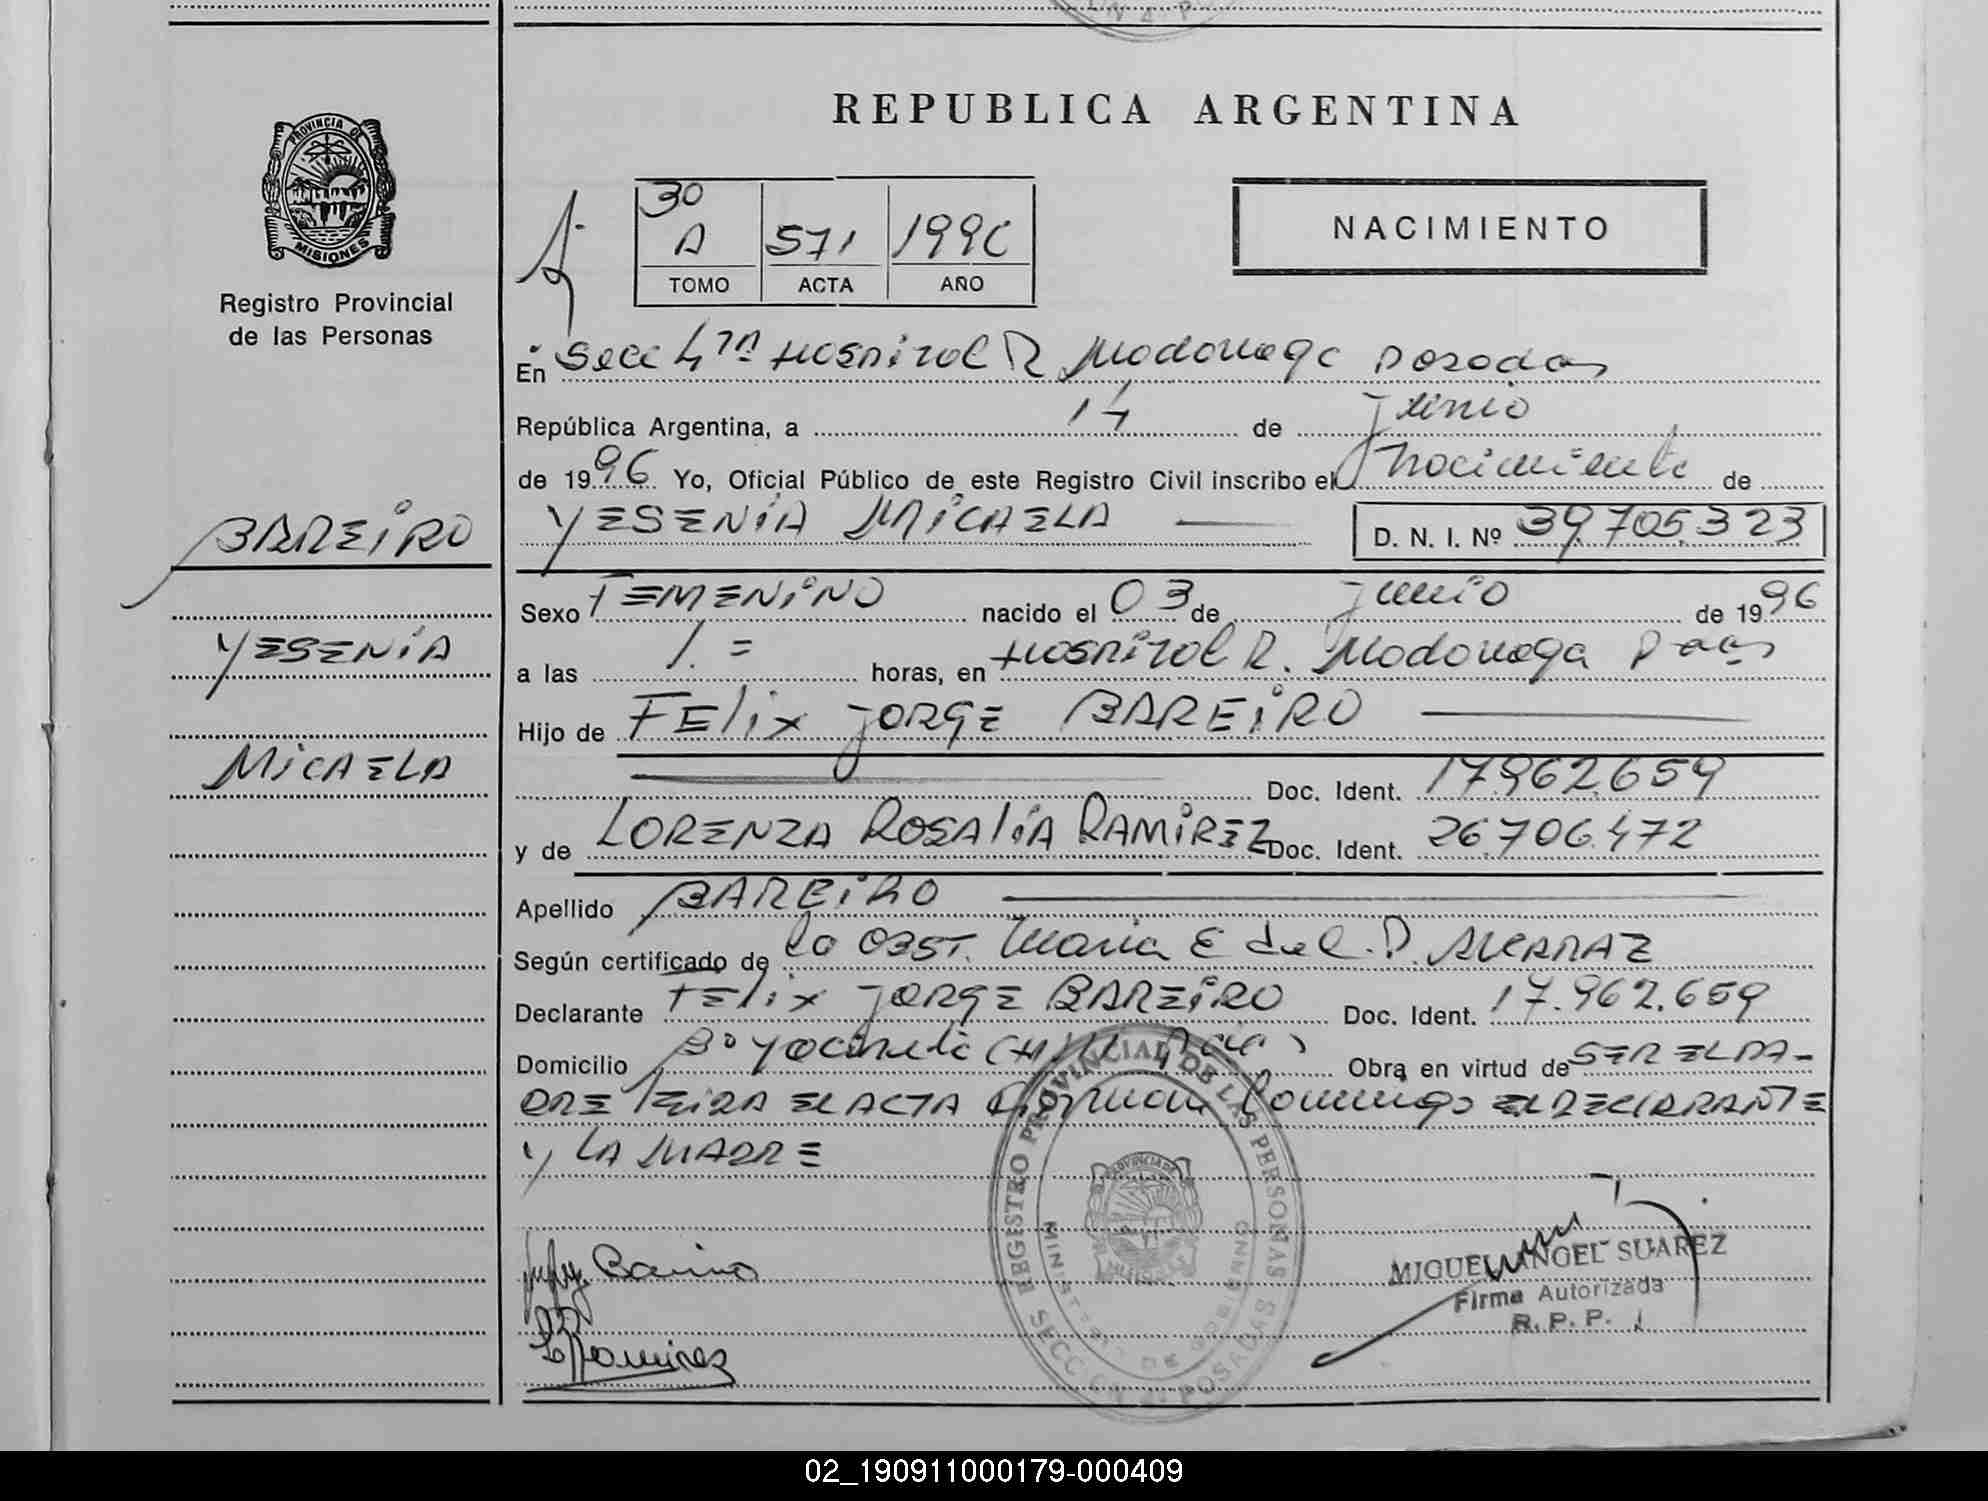 REPUBLICA ARGENTINA
PROVINCIA DE
MISIONES
Registro Provincial
de las Personas
30
A 571 1996
TOMO ACTA AÑO
NACIMIENTO
En Secc 4ta Hospital R Madariaga Posadas
República Argentina, a 14 de junio
de 1996 Yo, Oficial Público de este Registro Civil inscribo el nacimiento de
BAREIRO
YESENIA MICAELA D. N. I. Nº 39.705.323
Sexo FEMENINO nacido el 03 de junio de 1996
YESENIA
a las 1. = horas, en Hospital R. Madariaga Pdas
Hijo de FELIX JORGE BAREIRO
MICAELA
Doc. Ident. 17.962.659
y de LORENZA ROSALIA RAMIREZ Doc. Ident. 26.706.472
Apellido BAREIRO
Según certificado de la OBST. Maria E del C. P. ALCARAZ
Declarante FELIX JORGE BAREIRO Doc. Ident. 17.962.659
Domicilio Bº Obra en virtud de SER EL PA-
DRE LEIDA EL ACTA EL DECLARANTE
Y LA MADRE
REGISTRO PROVINCIAL DE LAS PERSONAS
MINISTERIO DE GOBIERNO
SECCION 4ª POSADAS
PROVINCIA DE
MISIONES
Bareiro
MIGUEL ANGEL SUAREZ
Firma Autorizada
R. P. P.
L Ramirez
02_190911000179-000409